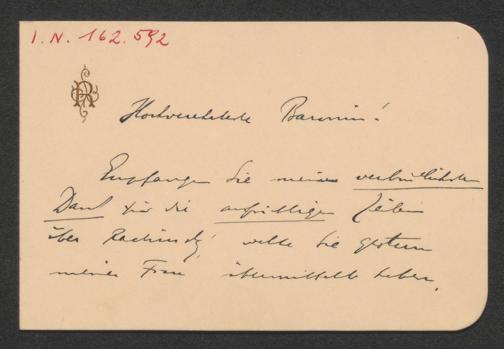 I. N. 162.592
Hochverehrteste Baronin!
Empfangen Sie meinen verbindlichsten
Dank für die Zeilen
über welche Sie gestern
meiner Frau übermittelt haben.